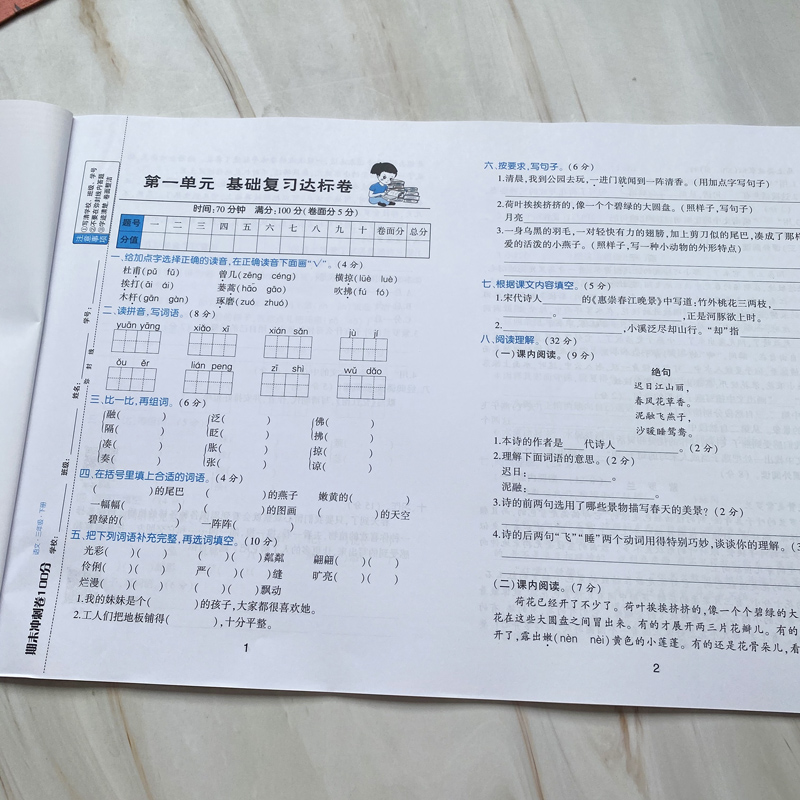 注意事项
①写清学校、班级、学号
②不要在弥封线内答题
③字迹清楚,卷面整洁
学号:
姓名:
班级:
学校:
弥 封 线
语文·三年级·下册
期末冲刺卷100分
第一单元 基础复习达标卷
时间:70分钟 满分:100分(卷面分5分)
题号 一 二 三 四 五 六 七 八 九 十 卷面分 总分
分值
一、给加点字选择正确的读音,在正确读音下面画“√”。(4分)
杜甫(pǔ fǔ) 曾几(zēng céng) 横掠(lüè luè)
挨打(ài ái) 蒌蒿(hāo gāo) 吹拂(fú fó)
木杆(gān gàn) 琢磨(zuó zhuó)
二、读拼音,写词语。(8分)
yuān yāng xiǎo xī xián sǎn jù jí
ǒu ěr lián peng zī shì wǔ dǎo
三、比一比,再组词。(6分)
融( ) 泛( ) 佛( )
隔( ) 眨( ) 拂( )
凑( ) 胀( ) 掠( )
奏( ) 张( ) 谅( )
四、在括号里填上合适的词语。(4分)
( )的尾巴 ( )的燕子 嫩黄的( )
一幅幅( ) ( )的图画 ( )的天空
碧绿的( ) 一阵阵( )
五、把下列词语补充完整,再选词填空。(10分)
光彩( )( ) ( )( )粼粼 翩翩( )( )
伶俐( )( ) 严( )( )缝 旷亮( )( )
烂漫( )( ) ( )( )飘动
1.我的妹妹是个( )的孩子,大家都很喜欢她。
2.工人们把地板铺得( ),十分平整。
1
六、按要求,写句子。(6分)
1.清晨,我到公园去玩,一进门就闻到一阵清香。(用加点字写句子)
2.荷叶挨挨挤挤的,像一个个碧绿的大圆盘。(照样子,写句子)
月亮
3.一身乌黑的羽毛,一对轻快有力的翅膀,加上剪刀似的尾巴,凑成了那样
爱的活泼的小燕子。(照样子,写一种小动物的外形特点)
七、根据课文内容填空。(5分)
1.宋代诗人____的《惠崇春江晚景》中写道:竹外桃花三两枝,
____。____,正是河豚欲上时。
2.____,小溪泛尽却山行。“却”指
八、阅读理解。(32分)
(一)课内阅读。(9分)
绝句
迟日江山丽,
春风花草香。
泥融飞燕子,
沙暖睡鸳鸯。
1.本诗的作者是____代诗人____。(2分)
2.理解下面词语的意思。(2分)
迟日:____。
泥融:____。
3.诗的前两句选用了哪些景物描写春天的美景?(2分)
4.诗的后两句“飞”“睡”两个动词用得特别巧妙,谈谈你的理解。(3
(二)课内阅读。(7分)
荷花已经开了不少了。荷叶挨挨挤挤的,像一个个碧绿的大
花在这些大圆盘之间冒出来。有的才展开两三片花瓣儿。有的
开了,露出嫩(nèn nèi)黄色的小莲蓬。有的还是花骨朵儿,看
2